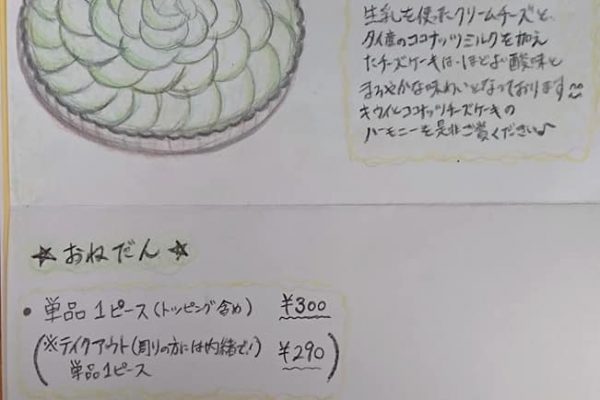 生乳を使ったクリームチーズと、
タイ産のココナッツミルクを加え
たチーズケーキは、ほどよい酸味と
まろやかな味わいとなっております
キウイとココナッツチーズケーキの
ハーモニーを是非ご賞ください♪
★おねだん★
・単品1ピース(トッピング含め) ¥300
(※テイクアウト(周りの方には内緒で!) ¥290)
単品1ピース